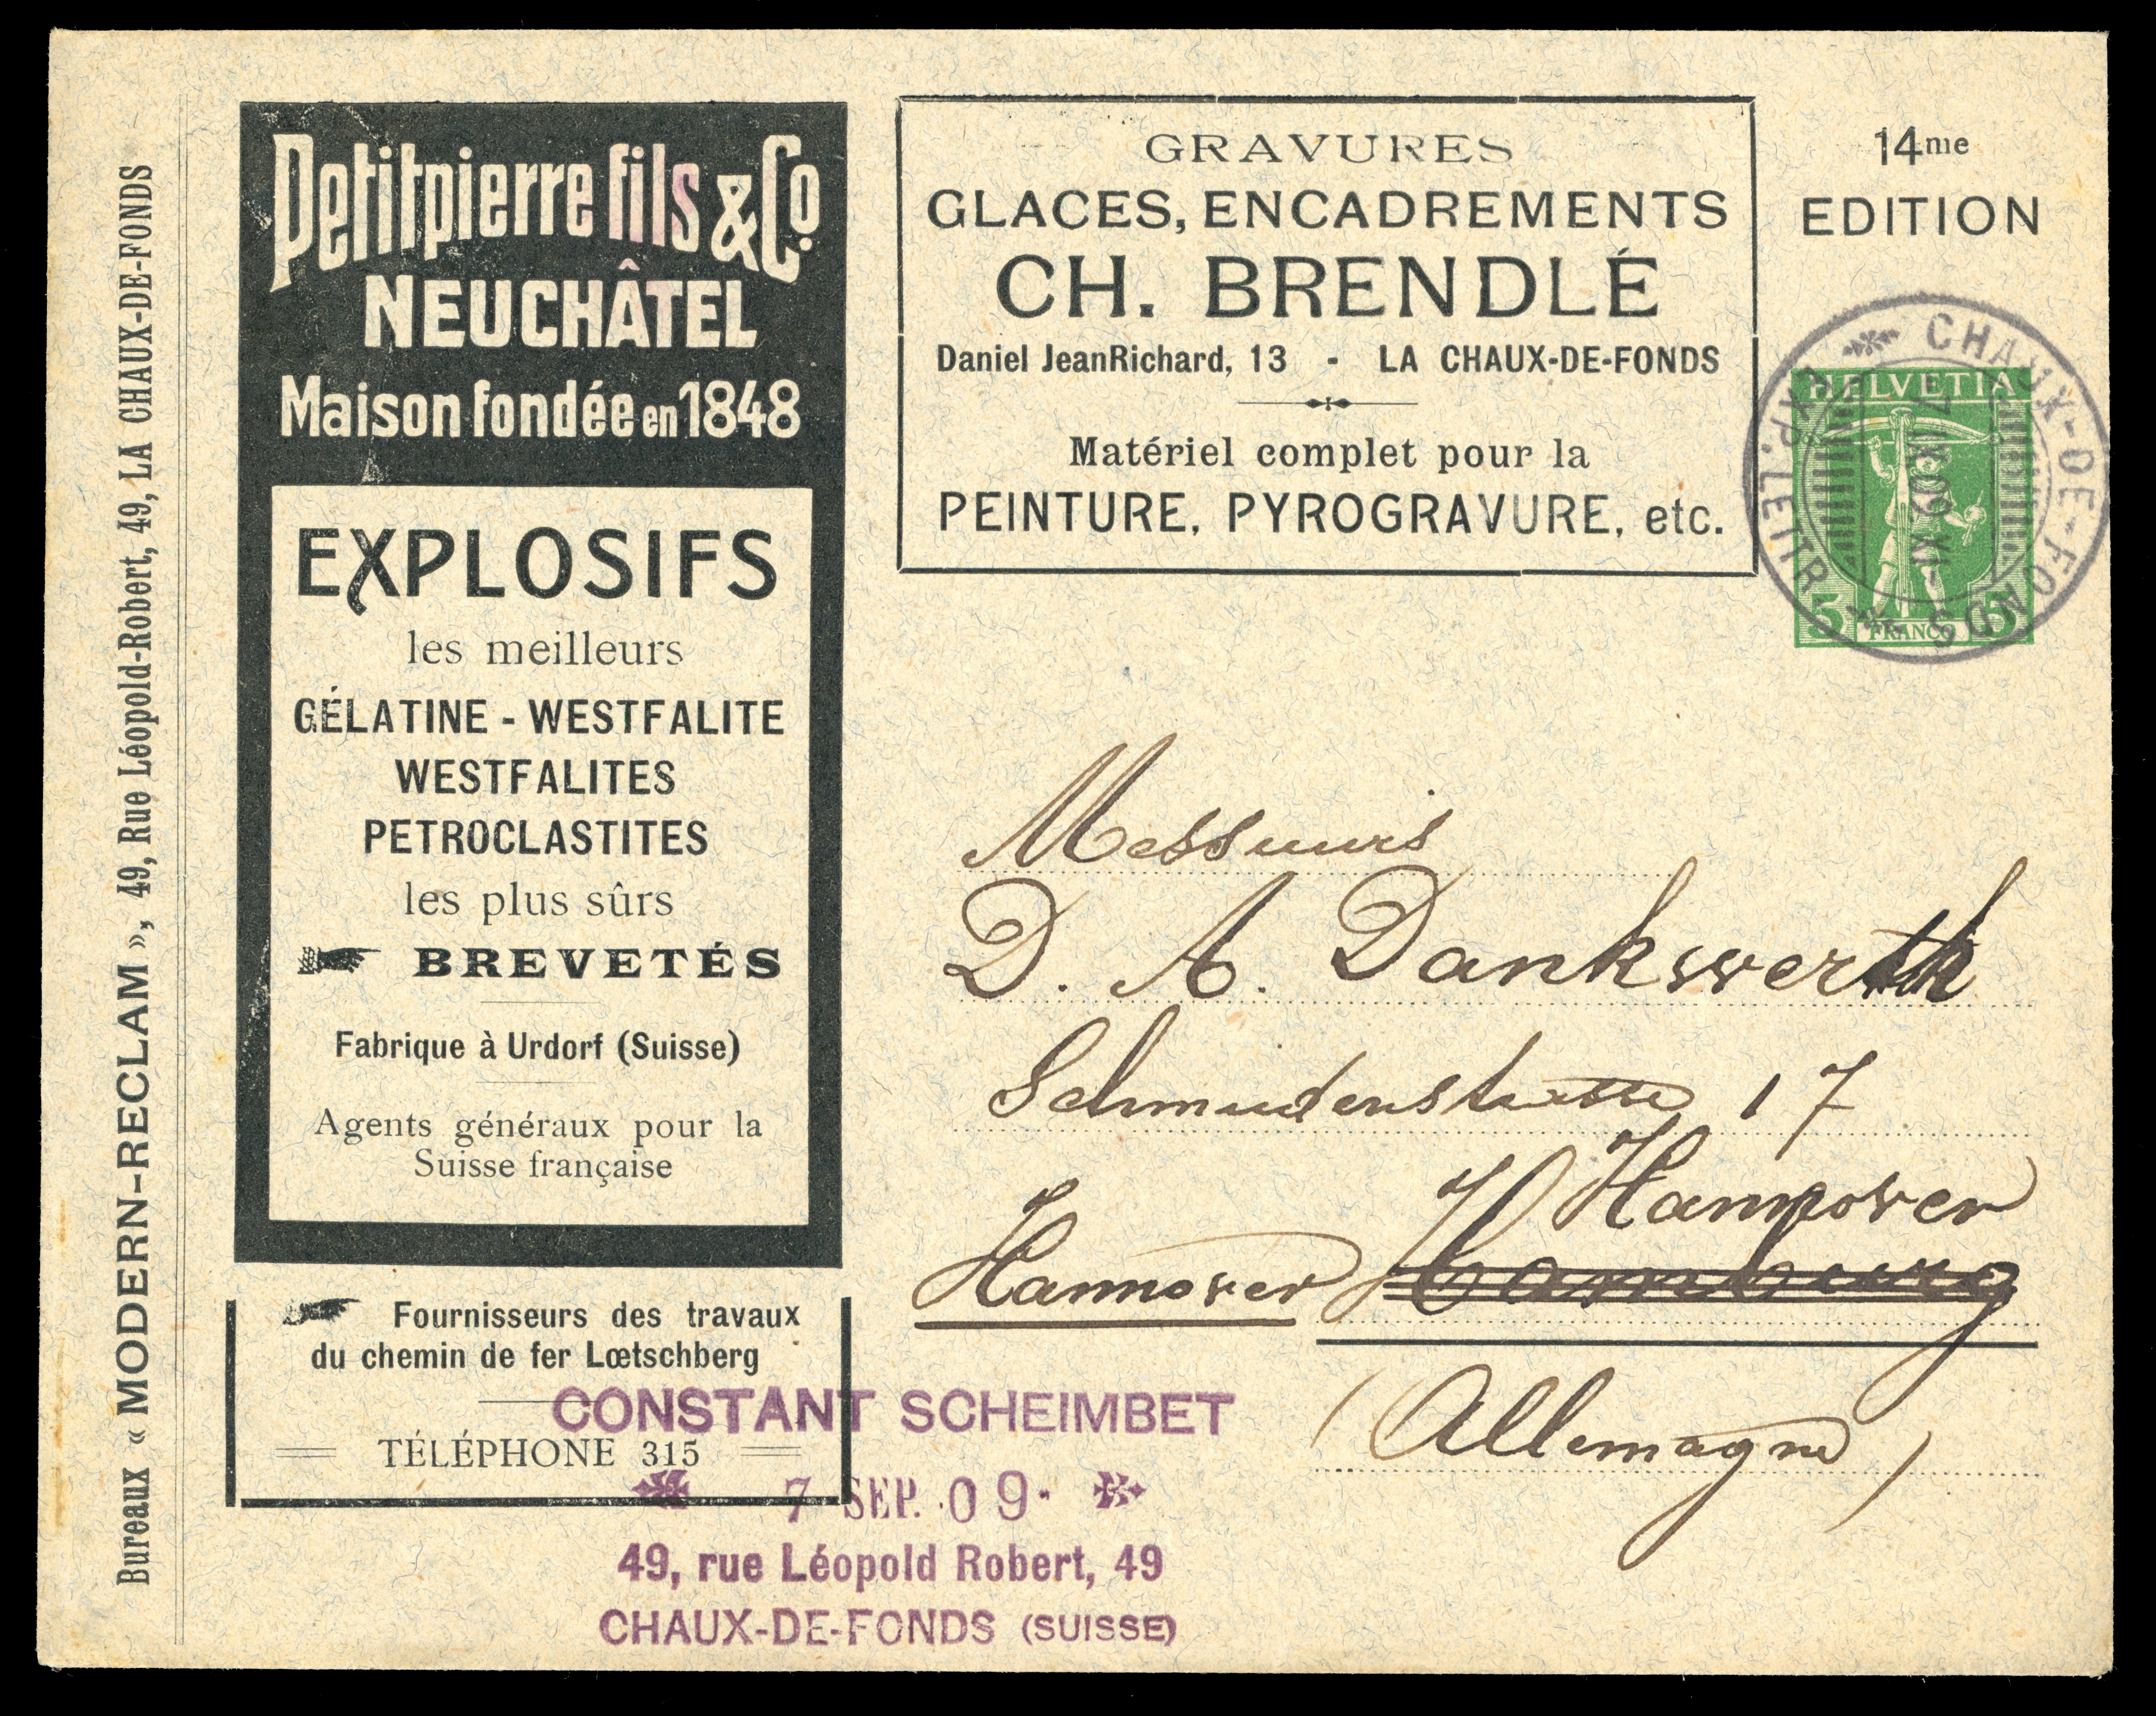 Bureaux « MODERN-RECLAM », 49, Rue Léopold-Robert, 49, LA CHAUX-DE-FONDS
Petitpierre fils & Co.
NEUCHÂTEL
Maison fondée en 1848
EXPLOSIFS
les meilleurs
GÉLATINE - WESTFALITE
WESTFALITES
PETROCLASTITES
les plus sûrs
BREVETÉS
Fabrique à Urdorf (Suisse)
Agents généraux pour la
Suisse française
Fournisseurs des travaux
du chemin de fer Lœtschberg
TÉLÉPHONE 315
GRAVURES
GLACES, ENCADREMENTS
CH. BRENDLÉ
Daniel JeanRichard, 13 - LA CHAUX-DE-FONDS
Matériel complet pour la
PEINTURE, PYROGRAVURE, etc.
14me
EDITION
CHAUX-DE-FONDS
EXP. LETTR.
HELVETIA
5 FRANCO 5
Messieurs
D. A. Dankwerth
Schmiedenstrasse 17
Hannover
Hannover Hamburg
(Allemagne)
CONSTANT SCHEIMBET
7 SEP. 09
49, rue Léopold Robert, 49
CHAUX-DE-FONDS (SUISSE)